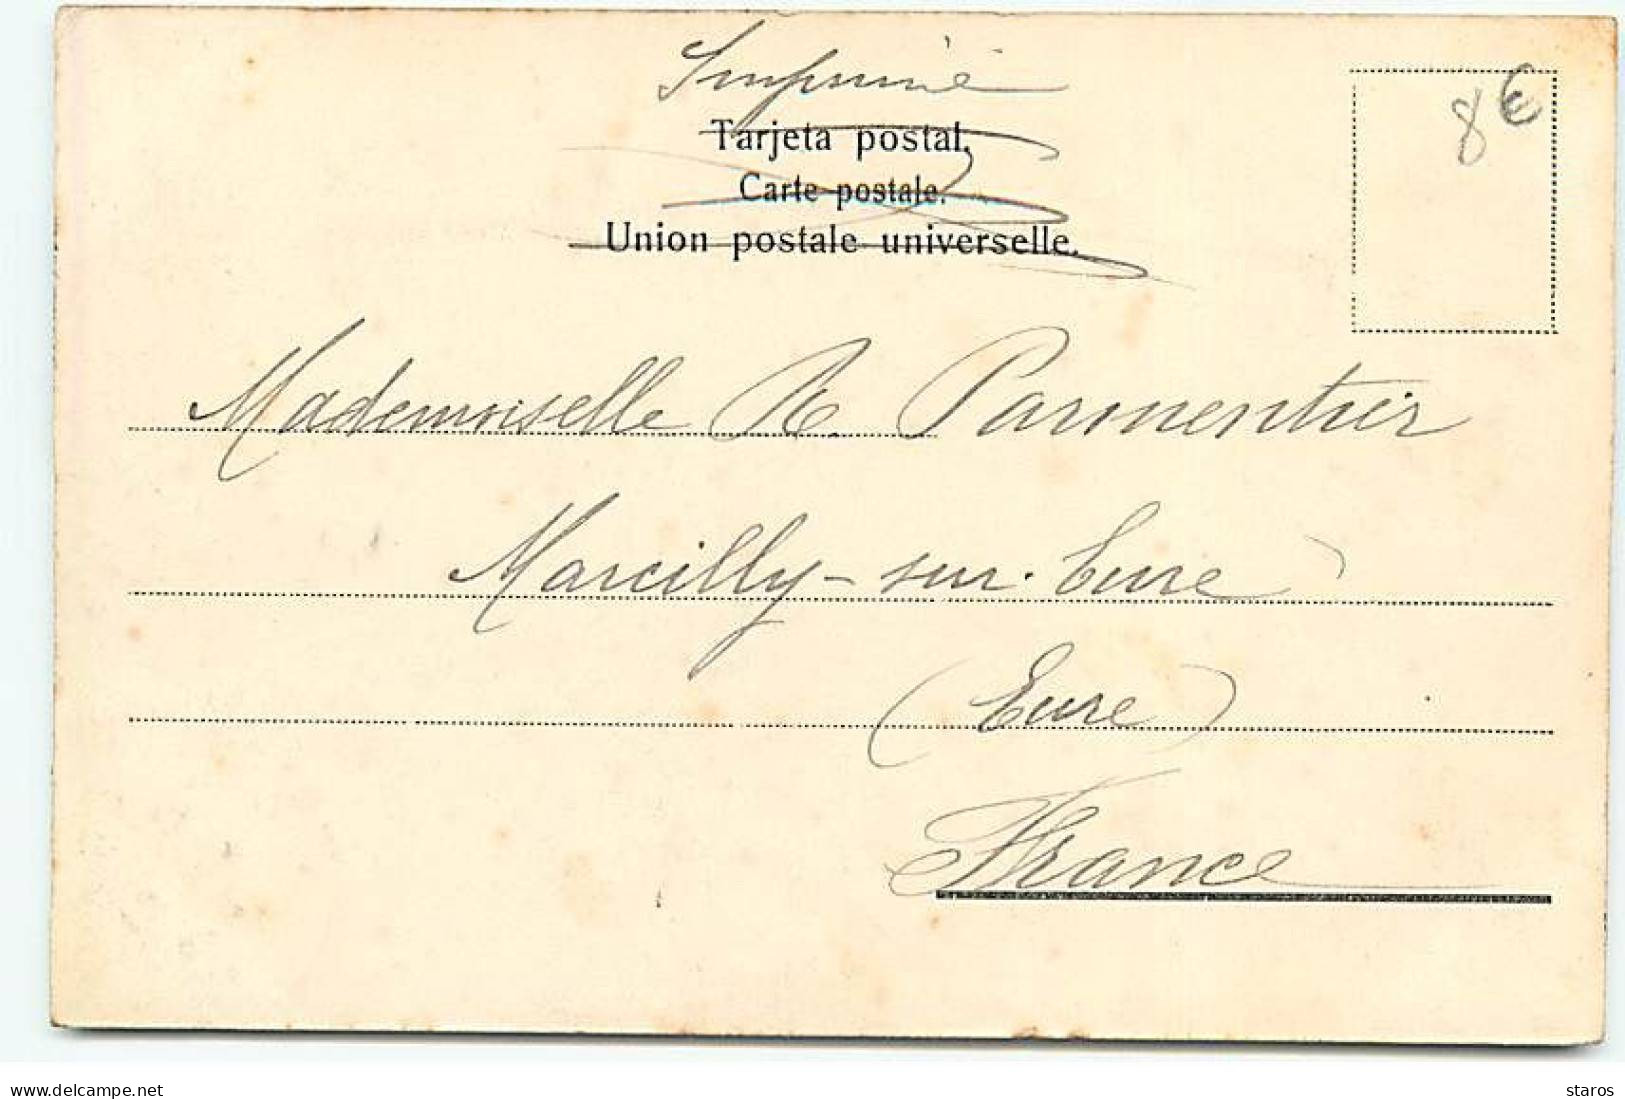 Imprimé
Tarjeta postal.
Carte postale.
Union postale universelle.
8 €
Mademoiselle R. Parmentier
Marcilly-sur-Eure
(Eure)
France
www.delcampe.net
staros